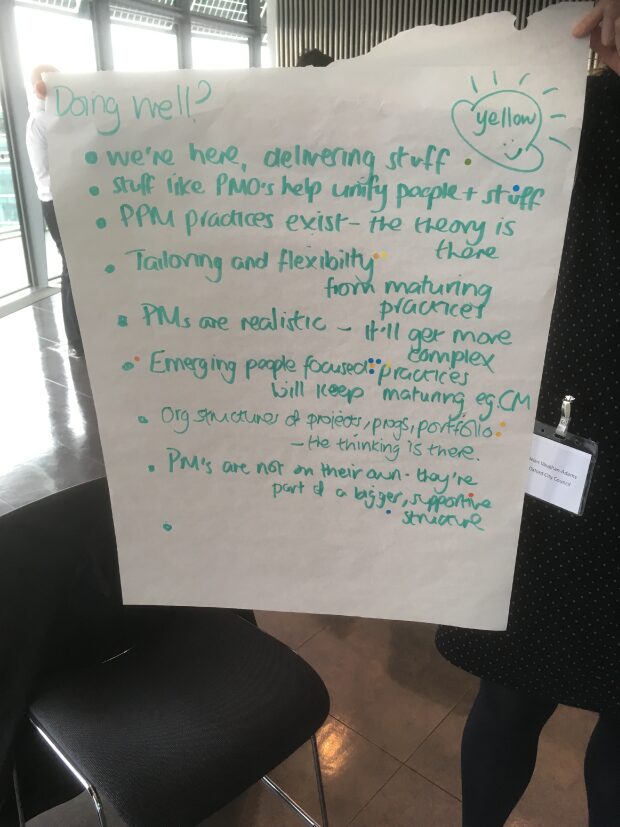 Doing well?
yellow
• we're here, delivering stuff
• stuff like PMO's help unify people + stuff
• PPM practices exist - the theory is
there
• Tailoring and flexibilty
from maturing
practices
• PMs are realistic - it'll get more
complex
• Emerging people focused practices
will keep maturing eg. CM
• Org structures of projects, progs, portfolio
- the thinking is there.
• PM's are not on their own - they're
part of a bigger, supportive
structure
•
Vaughan-Adams
Oxford City Council